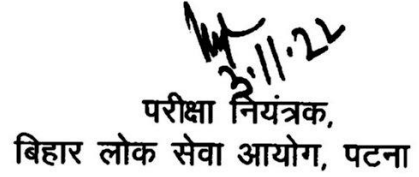 3.11.22
परीक्षा नियंत्रक,
बिहार लोक सेवा आयोग, पटना